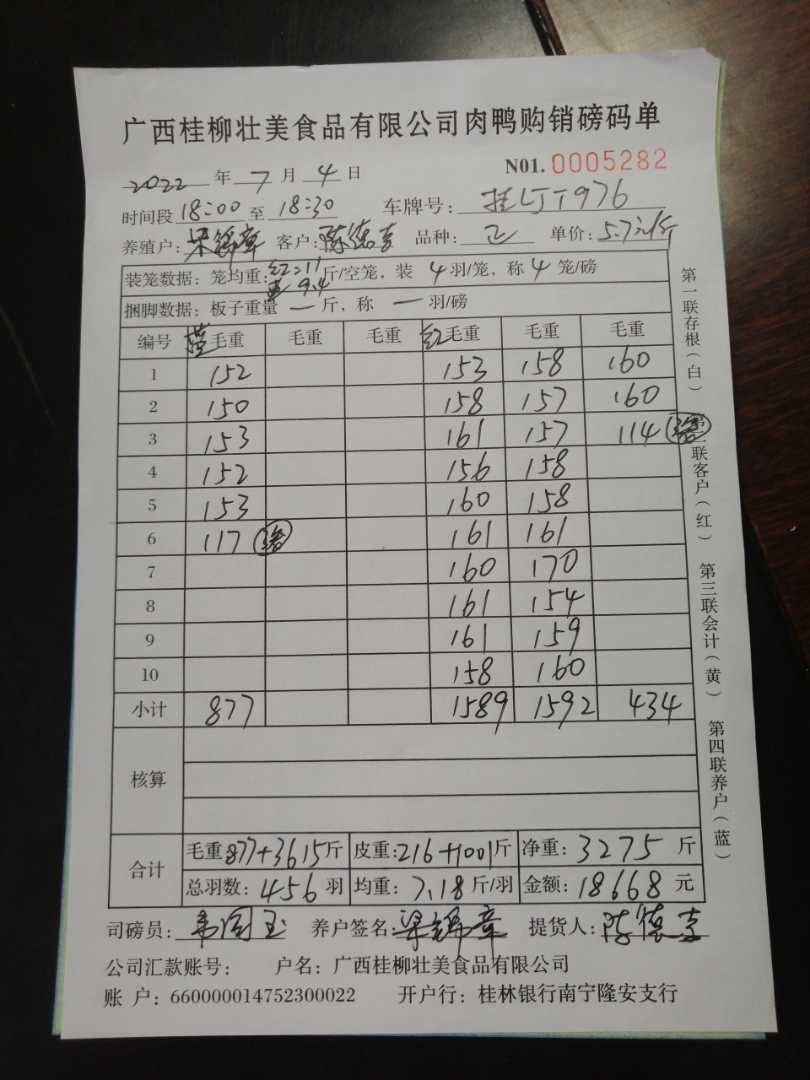 广西桂柳壮美食品有限公司肉鸭购销磅码单
2022 年 7 月 4 日 N01. 0005282
时间段 18:00 至 18:30 车牌号: 桂LJT976
养殖户: 梁锦章 客户: 陈德 品种: 单价: 5.7元/斤
装笼数据: 笼均重: 红=11 9.4 斤/空笼, 装 4 羽/笼, 称 4 笼/磅
捆脚数据: 板子重量 — 斤, 称 — 羽/磅
编号 毛重 毛重 毛重 红毛重 毛重 毛重
1 152 153 158 160
2 150 158 157 160
3 153 161 157 114
4 152 156 158
5 153 160 158
6 117 161 161
7 160 170
8 161 154
9 161 159
10 158 160
小计 877 1589 1592 434
核算
合计
毛重 877+3615 斤 皮重: 216+1001 斤 净重: 3275 斤
总羽数: 456 羽 均重: 7.18 斤/羽 金额: 18668 元
司磅员: 韦国玉 养户签名: 梁锦章 提货人: 陈德
公司汇款账号: 户名: 广西桂柳壮美食品有限公司
账 户: 660000014752300022 开户行: 桂林银行南宁隆安支行
第一联存根(白) 第二联客户(红) 第三联会计(黄) 第四联养户(蓝)